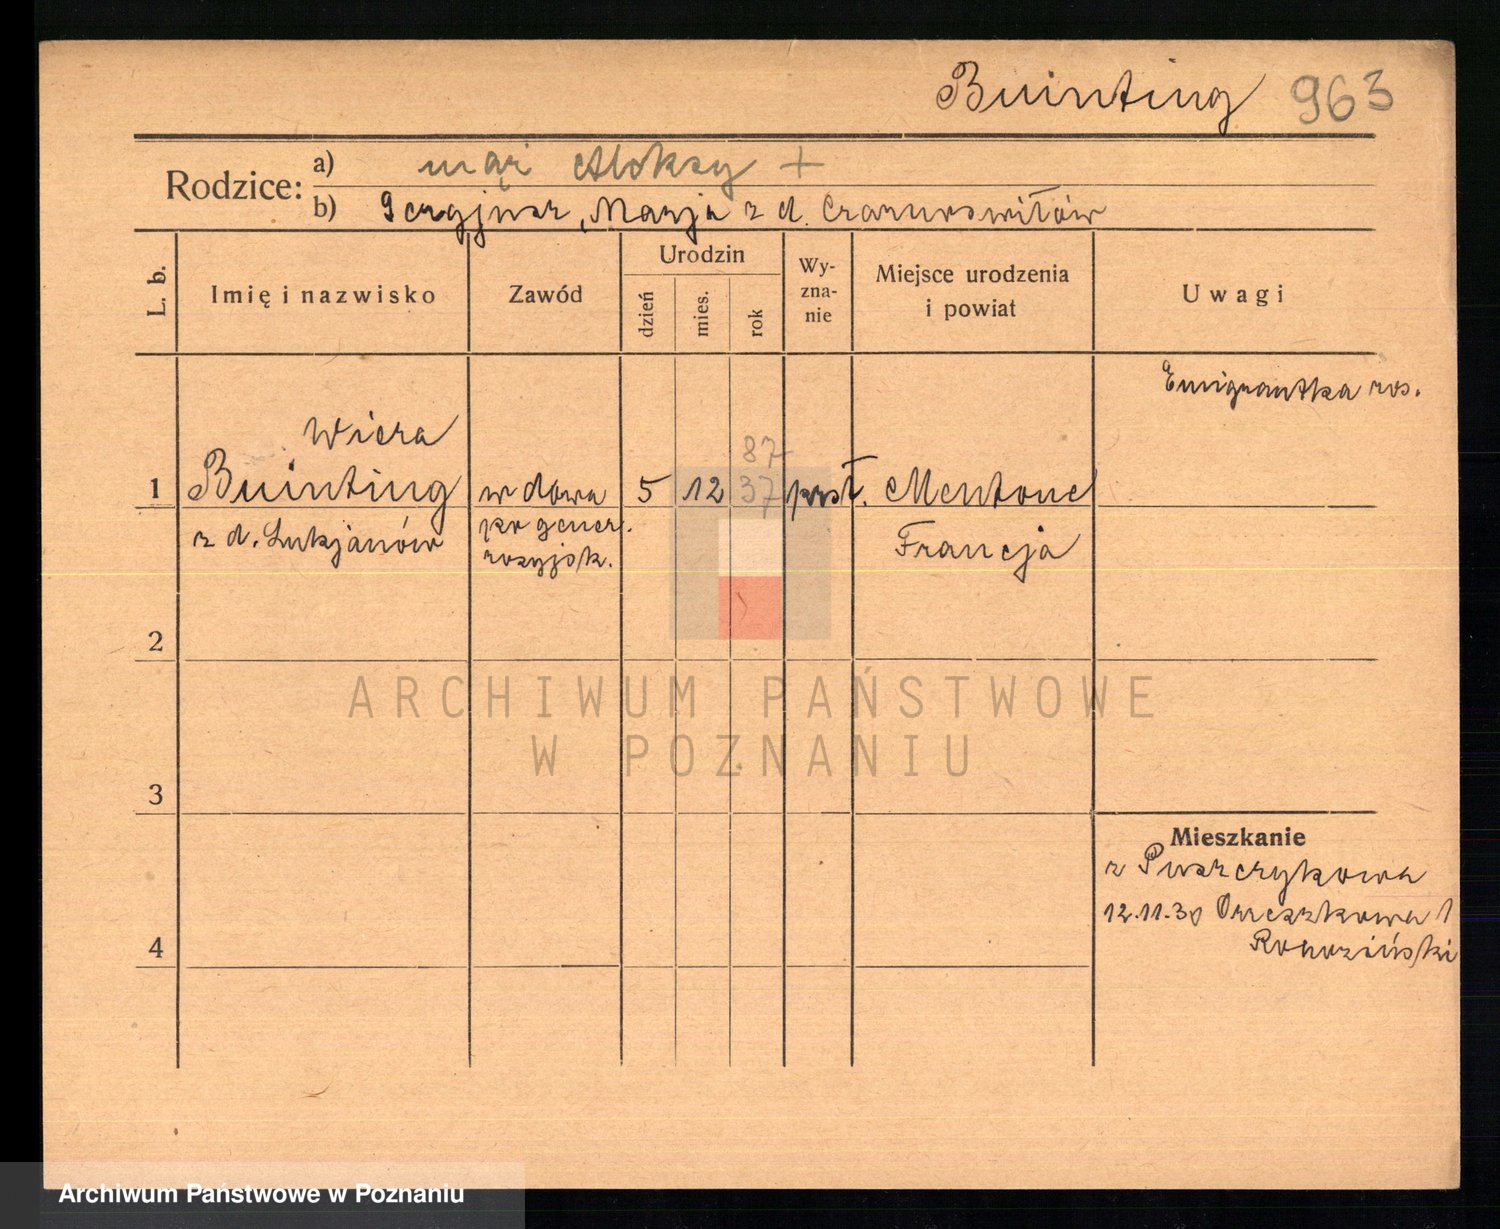 Buinting 963
Rodzice:
a) mąż Aleksy +
b) Sergjusz, Marja z d.
L. b.
Imię i nazwisko
Zawód
Urodzin
dzień
mies.
rok
Wy-
zna-
nie
Miejsce urodzenia
i powiat
Uwagi
Emigrantka ros.
Wiera
87
1 Buinting wdowa 5 12 37 Mentone
z d. Lukjanów po gener. Francja
rosyjsk.
2
3
4
Mieszkanie
z Puszczykowa
12.11.30 Orzeszkowa 1
ARCHIWUM PAŃSTWOWE
W POZNANIU
Archiwum Państwowe w Poznaniu